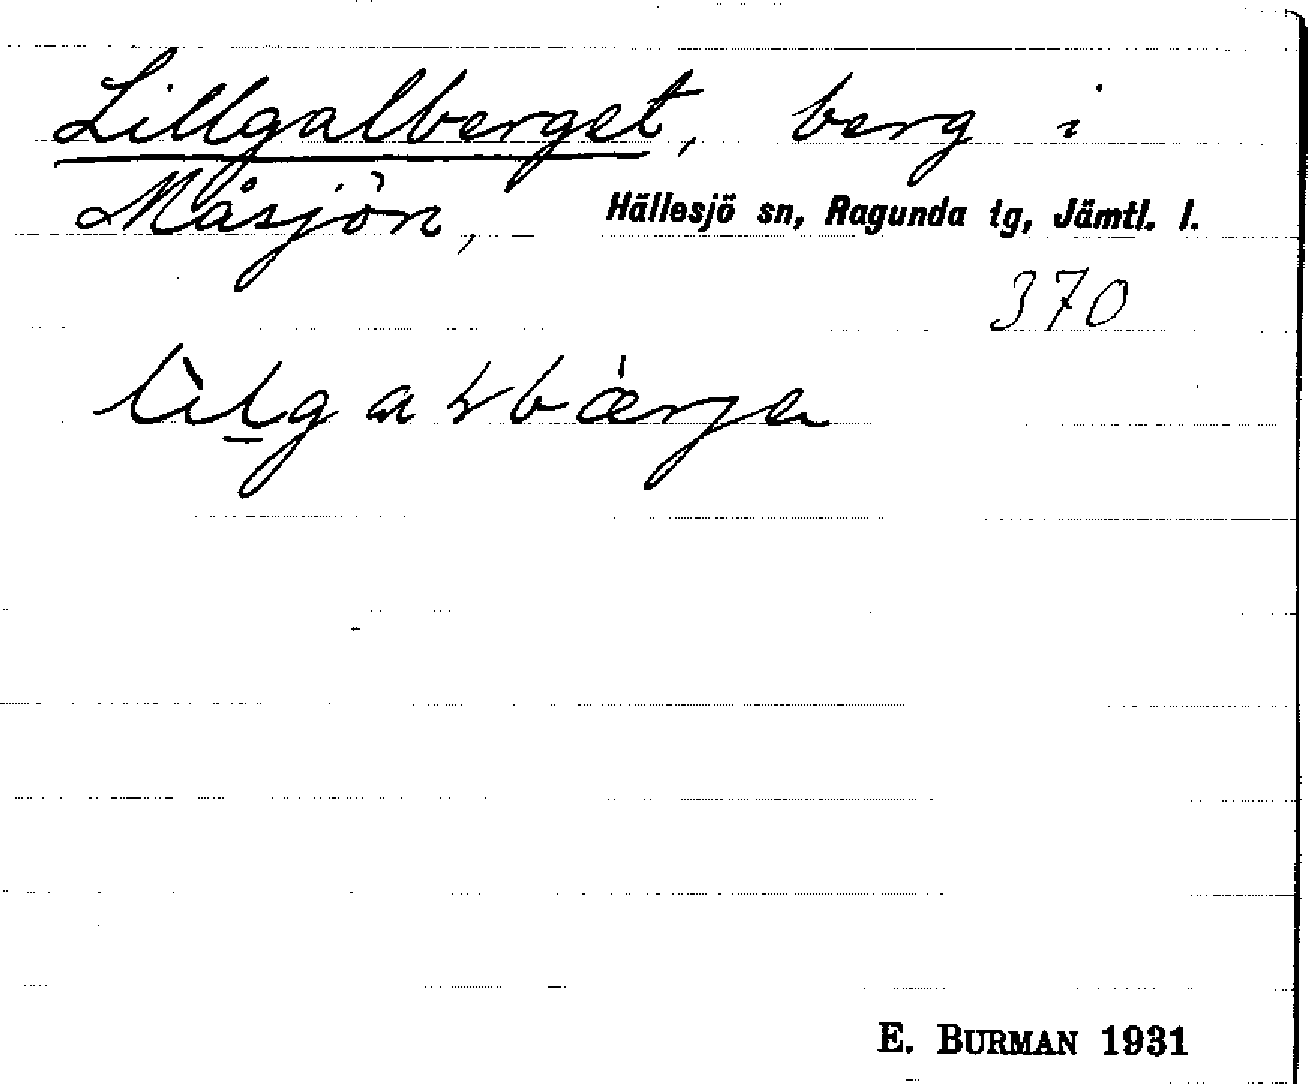 Lillgalberget, berg i
Måsjön, Hällesjö sn, Ragunda tg, Jämtl. l.
370
E. BURMAN 1931